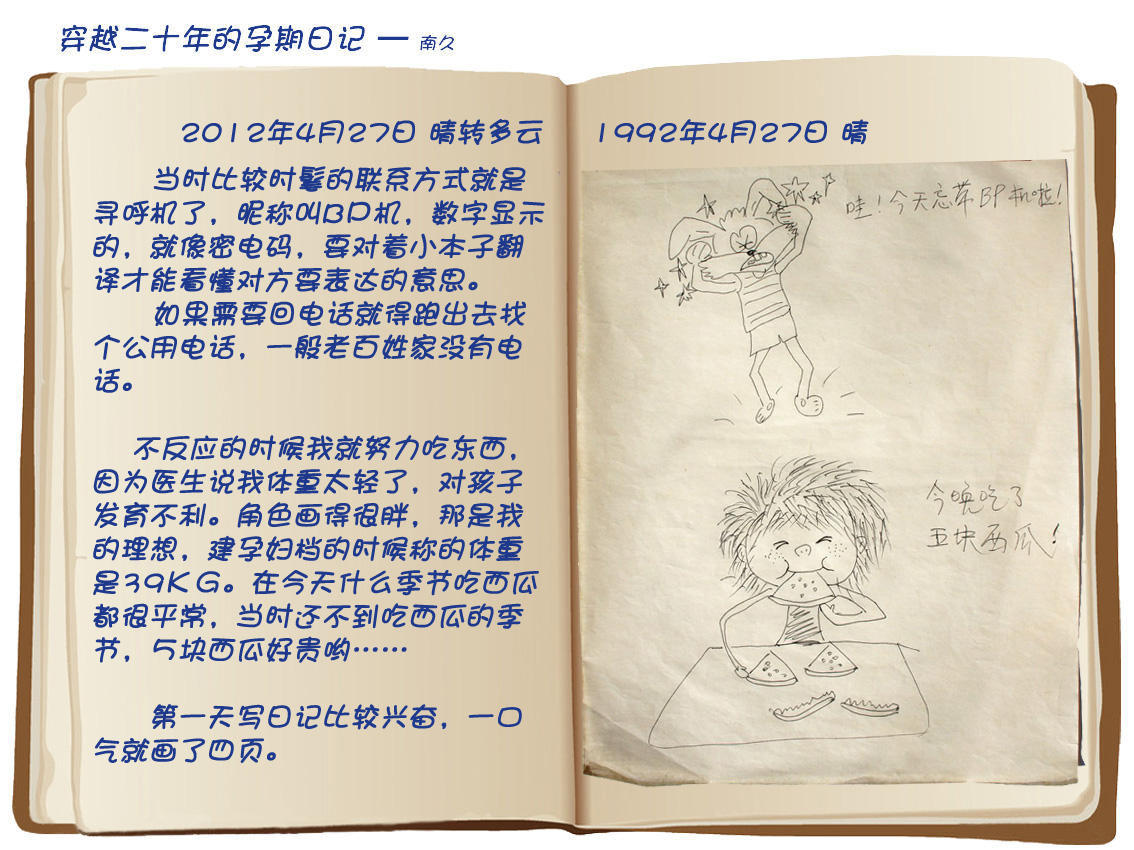 穿越二十年的孕期日记 — 南久
2012年4月27日 晴转多云
当时比较时髦的联系方式就是
寻呼机了，昵称叫BP机，数字显示
的，就像密电码，要对着小本子翻
译才能看懂对方要表达的意思。
如果需要回电话就得跑出去找
个公用电话，一般老百姓家没有电
话。
不反应的时候我就努力吃东西，
因为医生说我体重太轻了，对孩子
发育不利。角色画得很胖，那是我
的理想，建孕妇档的时候称的体重
是39KG。在今天什么季节吃西瓜
都很平常，当时还不到吃西瓜的季
节，5块西瓜好贵哟……
第一天写日记比较兴奋，一口
气就画了四页。
1992年4月27日 晴
哇！今天忘带BP机啦！
今晚吃了
五块西瓜！